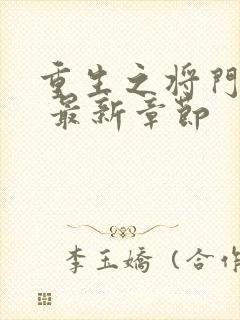 重生之将门
最新章节
李玉嬌（合作